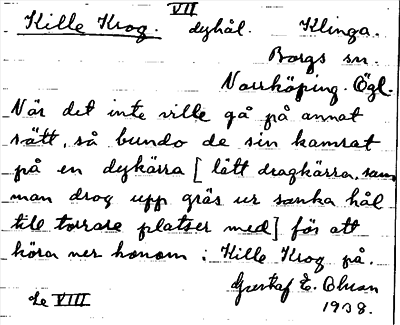 VII
Kille Krog. dyhål. Klinga.
Borgs sn.
Norrköping. Ögl.
När det inte ville gå på annat
sätt, så bundo de sin kamrat
på en dykärra [lätt dragkärra, som
man drog upp gräs ur sanka hål
till torrare platser med] för att
köra ner honom i Kille Krog på.
Gustaf E. Ohson
Se VIII
1938.